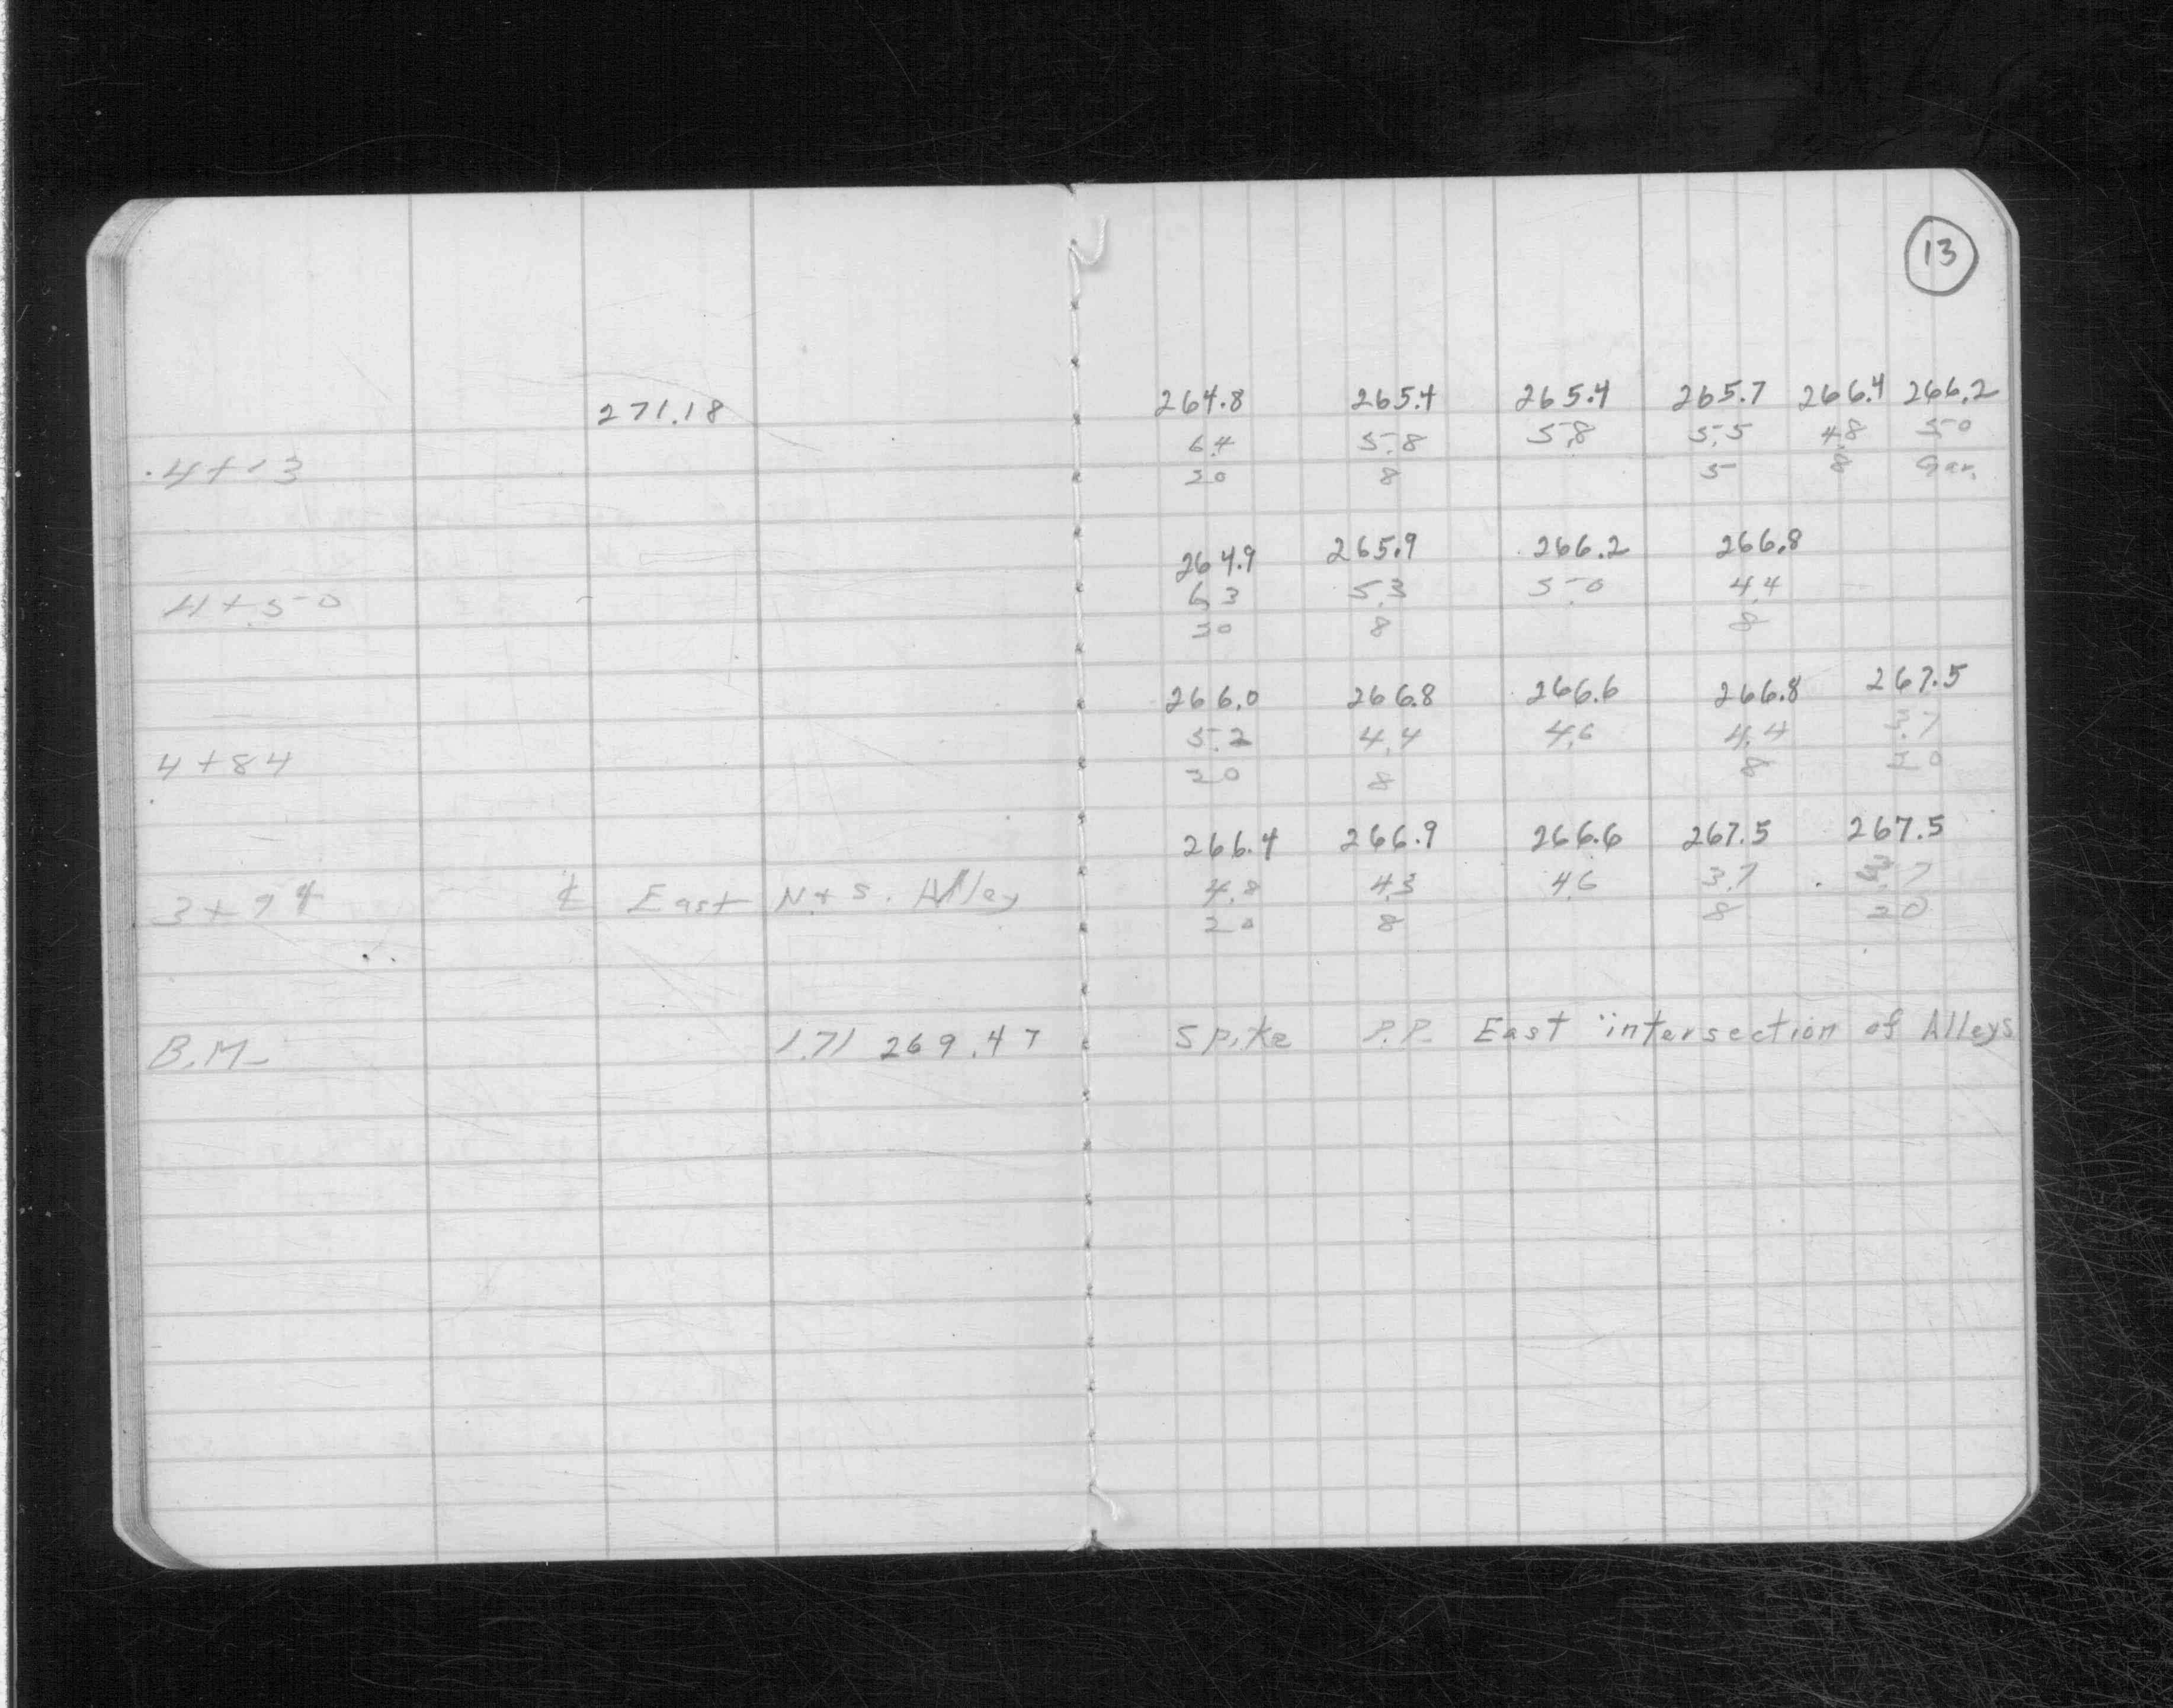 13
271.18 264.8 265.4 265.4 265.7 266.4 266.2
6.4 5.8 5.8 5.5 4.8 5.0
4+13 20 8 5 8 Gar.
264.9 265.9 266.2 266.8
4+50 6.3 5.3 5.0 4.4
20 8 8
266.0 266.8 266.6 266.8 267.5
5.2 4.4 4.6 4.4 3.7
4+84 20 8 8 20
266.4 266.9 266.6 267.5 267.5
3+94 ℄ East N & S. Alley 4.8 4.3 4.6 3.7 3.7
20 8 8 20
B.M. 1.71 269.47 Spike P.P. East intersection of Alleys